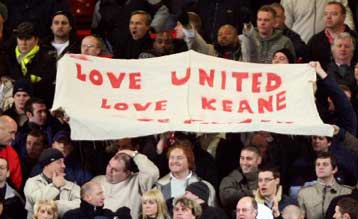 LOVE UNITED
LOVE KEANE